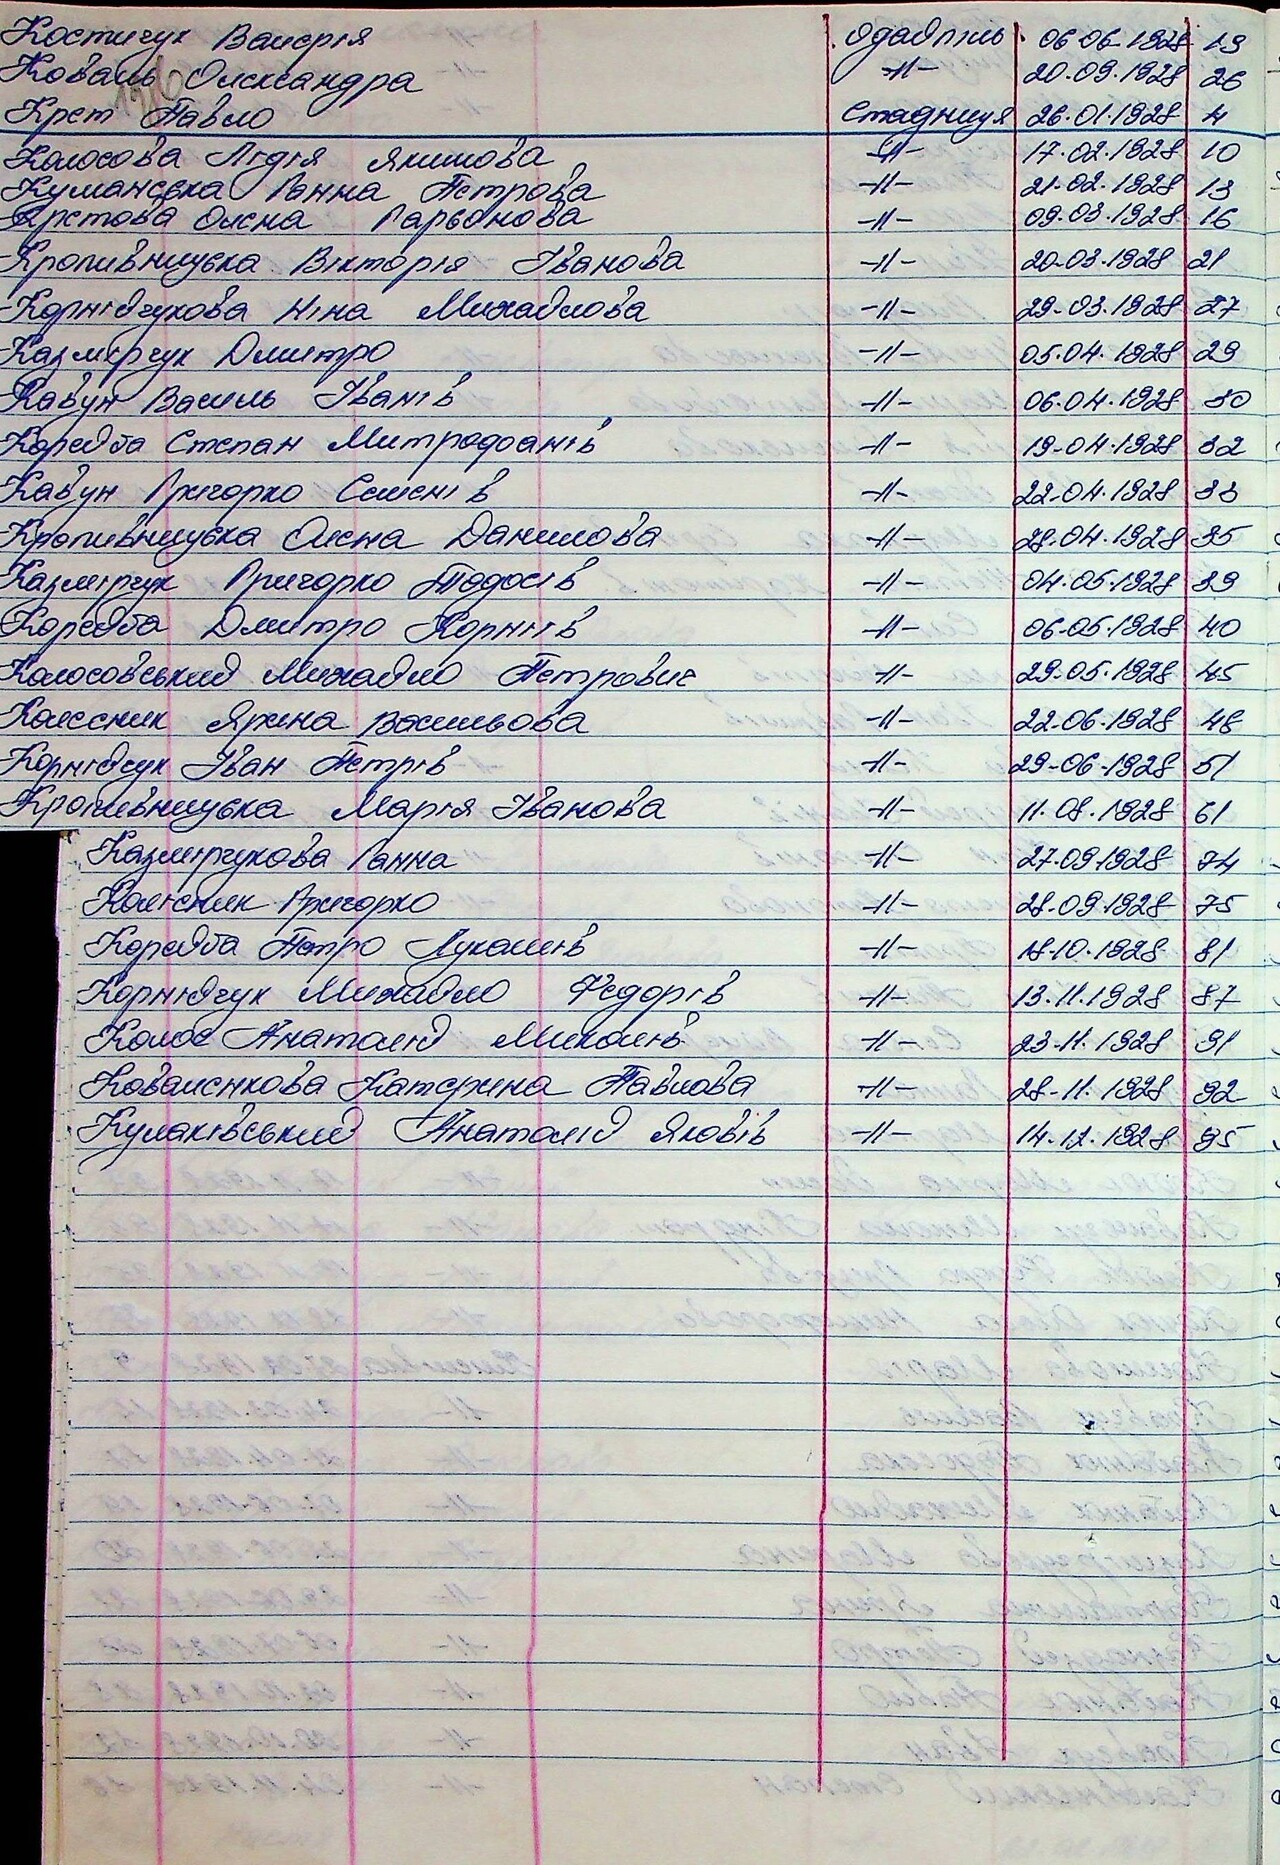 Костичук Валерія Одаїпіль 06.06.1928 19
Коваль Олександра -//- 20.09.1928 26
Крет Павло Стадниця 26.01.1928 4
Колосова Лідія Якимова -//- 17.02.1928 10
Куманська Ганна Петрова -//- 21.02.1928 13
Кретова Олена Ларьонова -//- 09.03.1928 16
Кропивницька Вікторія Іванова -//- 20.03.1928 21
Корнійчукова Ніна Михайлова -//- 29.03.1928 27
Казмірчук Дмитро -//- 05.04.1928 29
Кавун Василь Іванів -//- 06.04.1928 30
Корейба Степан Митрофанів -//- 19.04.1928 32
Кавун Григорко Семенів -//- 22.04.1928 33
Кропивницька Олена Данилова -//- 28.04.1928 35
Казмірчук Григорко Тодосів -//- 04.05.1928 39
Корейба Дмитро Корніїв -//- 06.05.1928 40
Колосовський Михайло Петрович -//- 29.05.1928 45
Колесник Ярина Васильова -//- 22.06.1928 48
Корнійчук Іван Петрів -//- 29.06.1928 51
Кропивницька Марія Іванова -//- 11.08.1928 61
Казмірчукова Ганна -//- 27.09.1928 74
Колісник Григорко -//- 28.09.1928 75
Корейба Петро Лукашів -//- 18.10.1928 81
Корнійчук Михайло Федорів -//- 13.11.1928 87
Колос Анатолій Миколів -//- 23.11.1928 91
Коваленкова Катерина Павлова -//- 28.11.1928 92
Кулаківський Анатолій Яковів -//- 14.12.1928 95